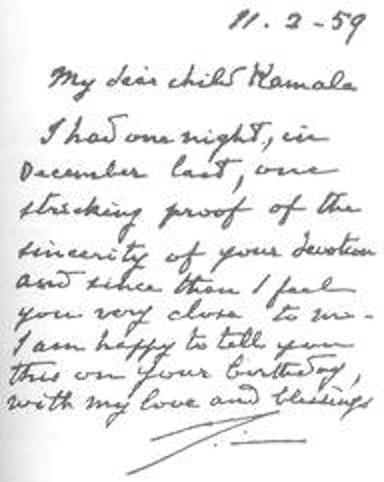 11. 2 - 59
My dear child Kamala
I had one night, in
December last, one
stricking proof of the
sincerity of your devotion
and since then I feel
you very close to me -
I am happy to tell you
this on your birthday,
with my love and blessings